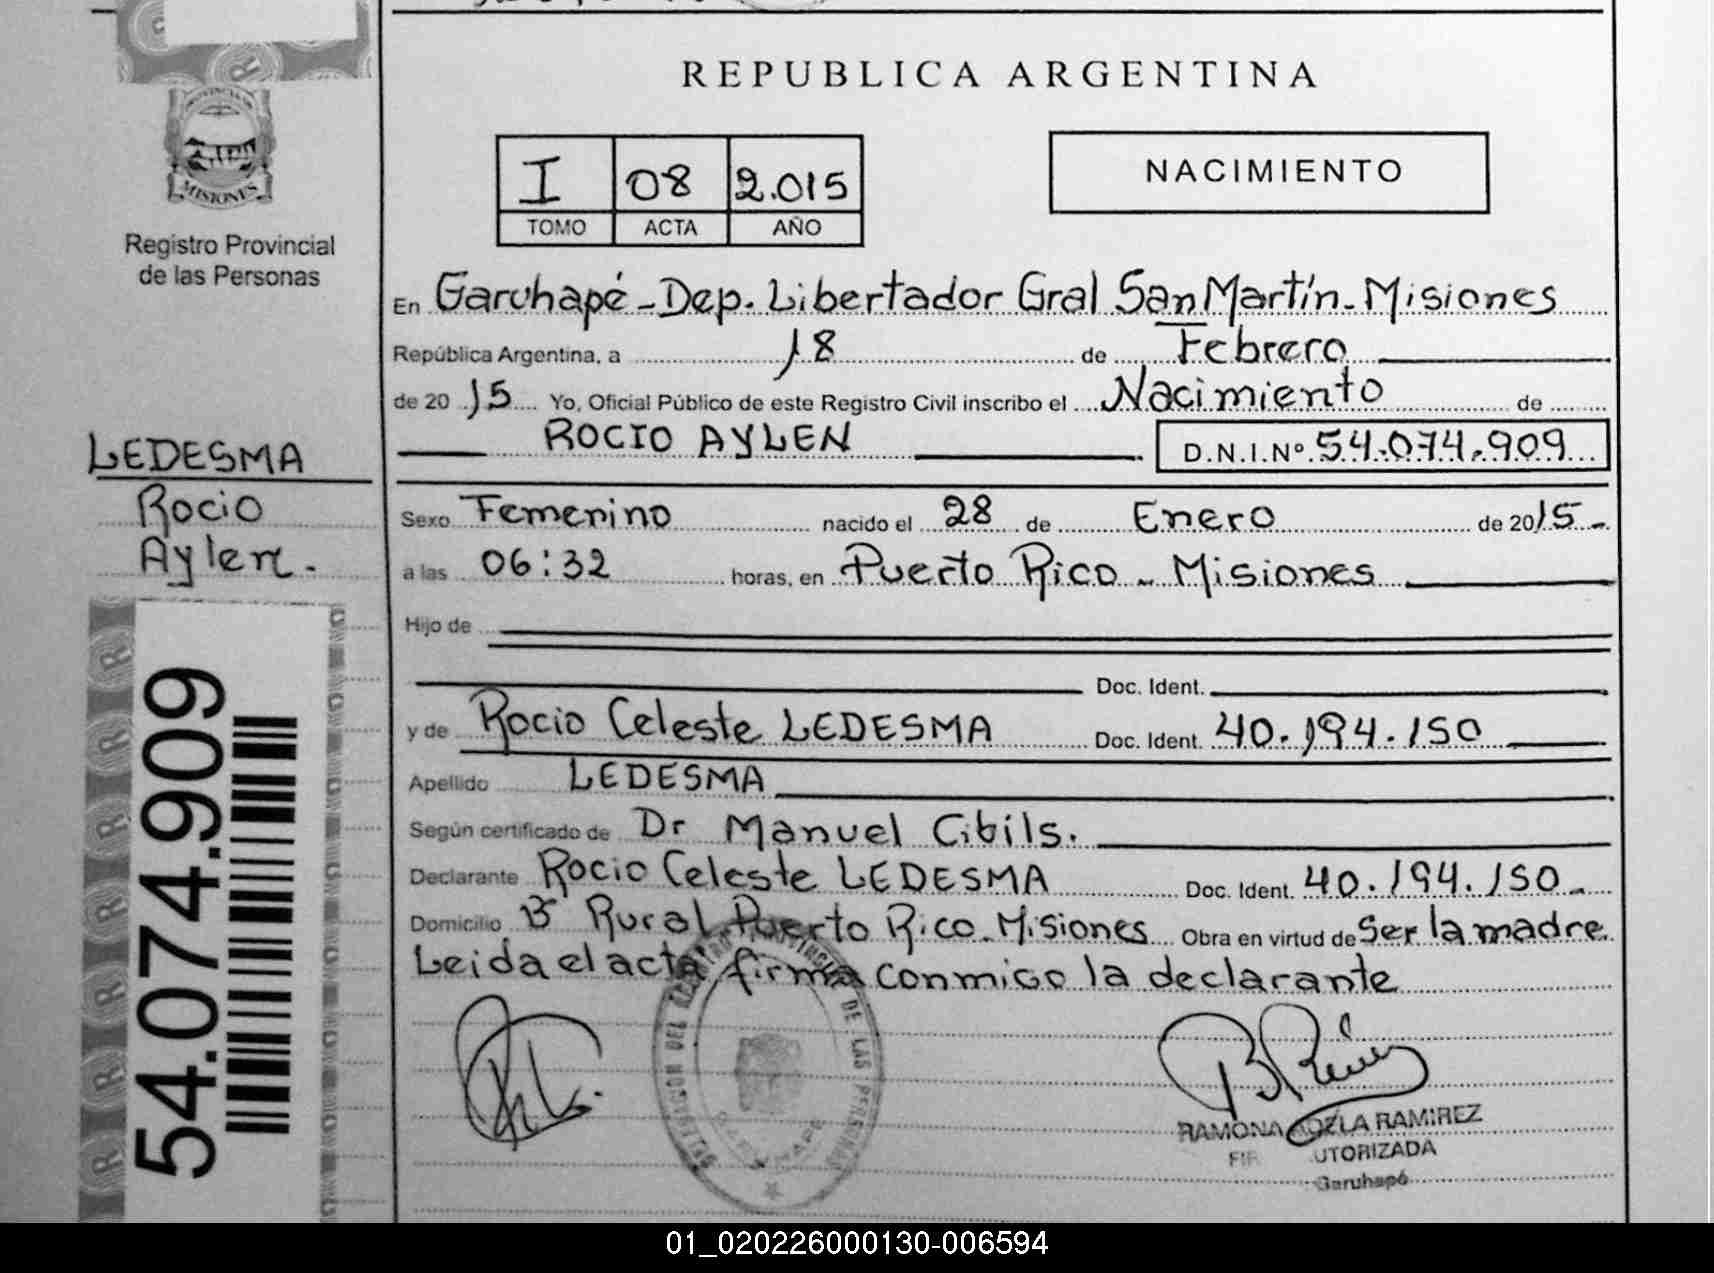 REPUBLICA ARGENTINA
I 08 2.015
TOMO ACTA AÑO
NACIMIENTO
MISIONES
Registro Provincial
de las Personas
LEDESMA
Rocio
Aylen.
54.074.909
En Garuhapé - Dep. Libertador Gral San Martín - Misiones
República Argentina, a 18 de Febrero
de 2015 Yo, Oficial Público de este Registro Civil inscribo el Nacimiento de
ROCIO AYLEN D.N.I.Nº 54.074.909
Sexo Femenino nacido el 28 de Enero de 2015 -
a las 06:32 horas, en Puerto Rico - Misiones
Hijo de
Doc. Ident.
y de Rocio Celeste LEDESMA Doc. Ident. 40.194.150
Apellido LEDESMA
Según certificado de Dr Manuel Cibils.
Declarante Rocio Celeste LEDESMA Doc. Ident. 40.194.150 -
Domicilio Bº Rural Puerto Rico - Misiones Obra en virtud de Ser la madre.
Leida el acta, firma conmigo la declarante
DEL REGISTRO PROVINCIAL DE LAS PERSONAS
RAMONA RAMIREZ
Garuhapé
01_020226000130-006594